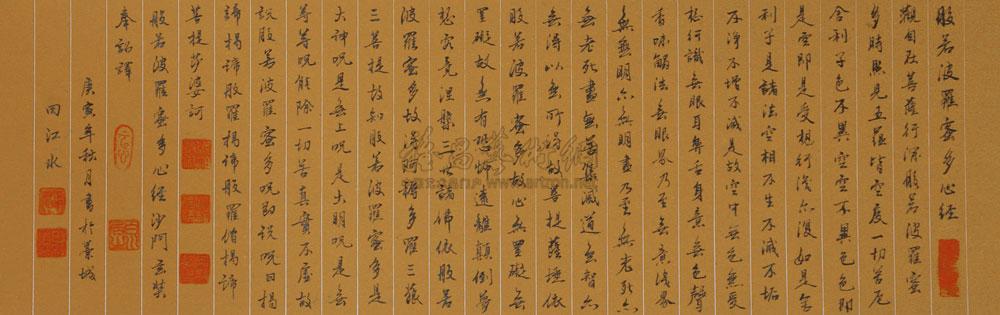 般若波羅蜜多心經
觀自在菩薩行深般若波羅蜜
多時照見五蘊皆空度一切苦厄
舍利子色不異空空不異色色即
是空空即是色受想行識亦復如是舍
利子是諸法空相不生不滅不垢
不淨不增不減是故空中無色無受
想行識無眼耳鼻舌身意無色聲
香味觸法無眼界乃至無意識界
無無明亦無無明盡乃至無老死亦
無老死盡無苦集滅道無智亦
無得以無所得故菩提薩埵依
般若波羅蜜多故心無罣礙無
罣礙故無有恐怖遠離顛倒夢
想究竟涅槃三世諸佛依般若
波羅蜜多故得阿耨多羅三藐
三菩提故知般若波羅蜜多是
大神呪是大明呪是無上呪是無
等等呪能除一切苦真實不虛故
說般若波羅蜜多呪即說呪曰揭
諦揭諦般羅揭諦般羅僧揭諦
菩提莎婆訶
般若波羅蜜多心經沙門玄奘
奉詔譯
庚寅年秋月書於景城
田江水